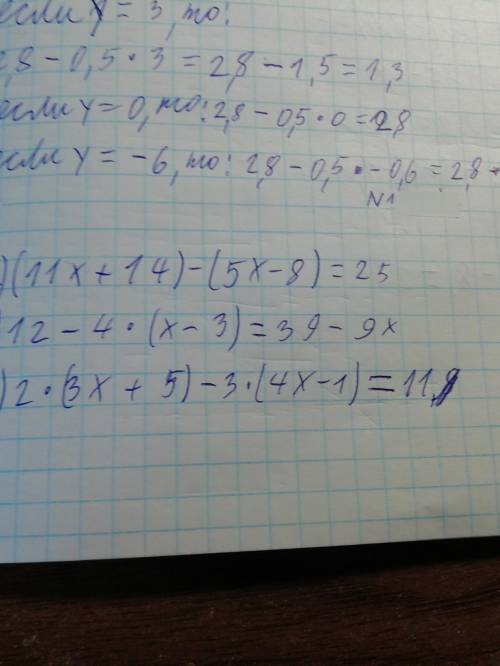 если y = 3, то:
2,8 - 0,5 · 3 = 2,8 - 1,5 = 1,3
если y = 0, то: 2,8 - 0,5 · 0 = 2,8
если y = -6, то: 2,8 - 0,5 · -0,6 = 2,8 +
N1
)(11x + 14) - (5x - 8) = 25
12 - 4 · (x - 3) = 39 - 9x
) 2 · (3x + 5) - 3 · (4x - 1) = 11,